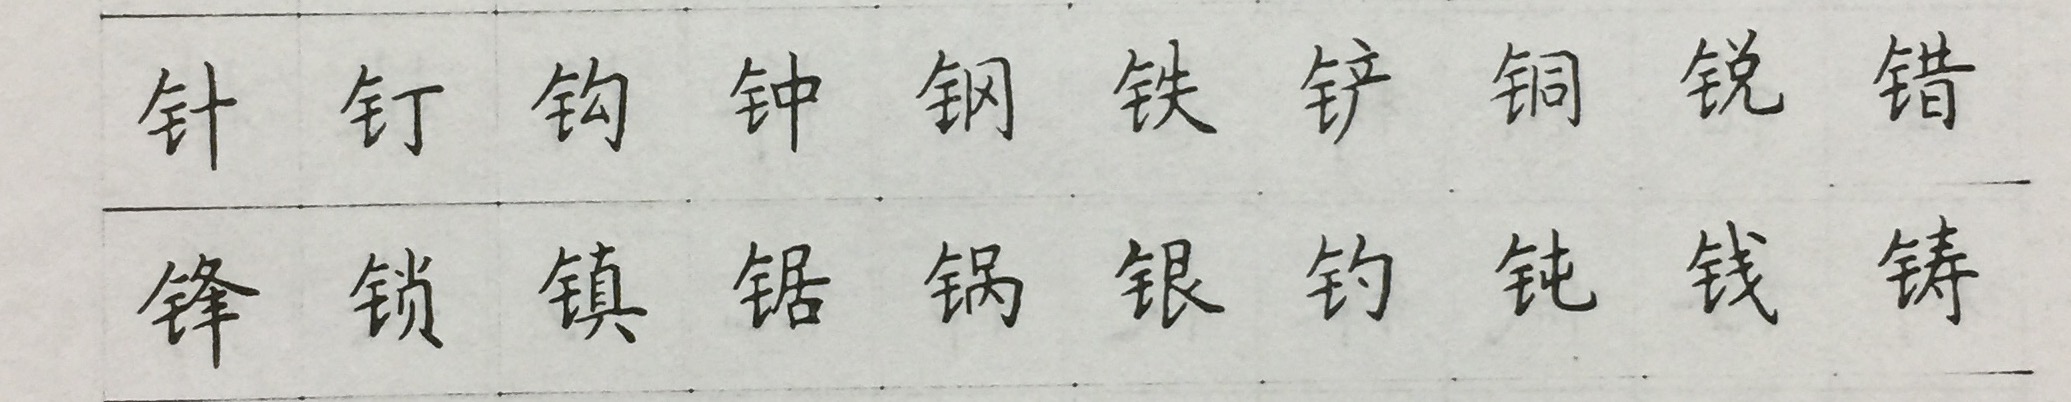 针钉钩钟钢铁铲铜锐错
锋锁镇锯锅银钓钝钱铸